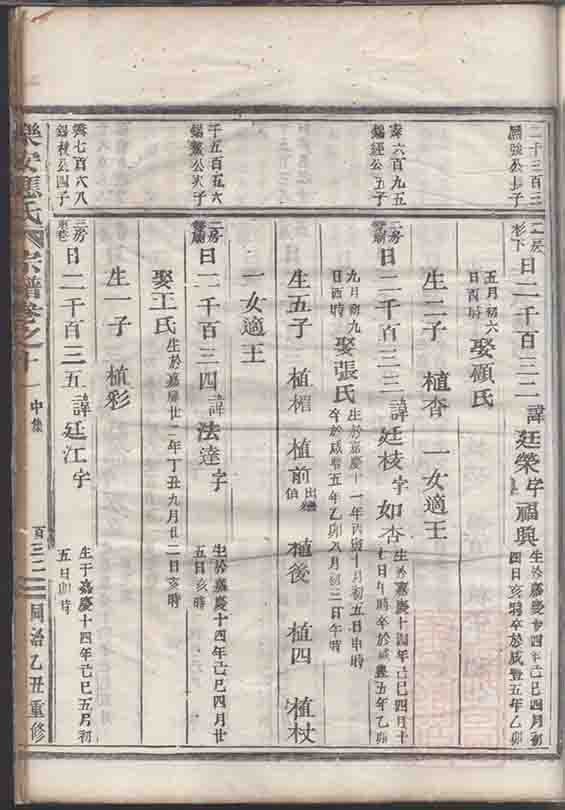 二千三百三
二房
杉下
日二千百三二諱廷榮字福興
生於嘉慶廿四年己巳四月初
四日亥時卒於咸豐五年乙卯
五月初六
日酉時
娶顧氏
生二子 植杏 一女適王
寿六百九五
錫經公五子
二房
日二千百三三諱廷枝字如杏
生於嘉慶十四年己巳四月十
七日午時卒於咸豐五年乙卯
九月初九
日酉時
娶張氏
生於嘉慶十一年丙寅十月初五日申時
卒於咸豐五年乙卯八月初三日午時
生五子 植楣 植前 出繼 植後 植四 植杖
一女適王
千五百五六
錫鰲公次子
二房
日二千百三四諱法達字
生於嘉慶十四年己巳四月廿
五日亥時
娶王氏
生於嘉慶廿二年丁丑九月廿二日亥時
生一子 植彩
齊七百六八
錫枝公四子
三房
日二千百三五諱廷江字
生于嘉慶十四年己巳五月初
五日卯時
樂安應氏宗譜卷之十一 中集 百三二 同治乙丑重修